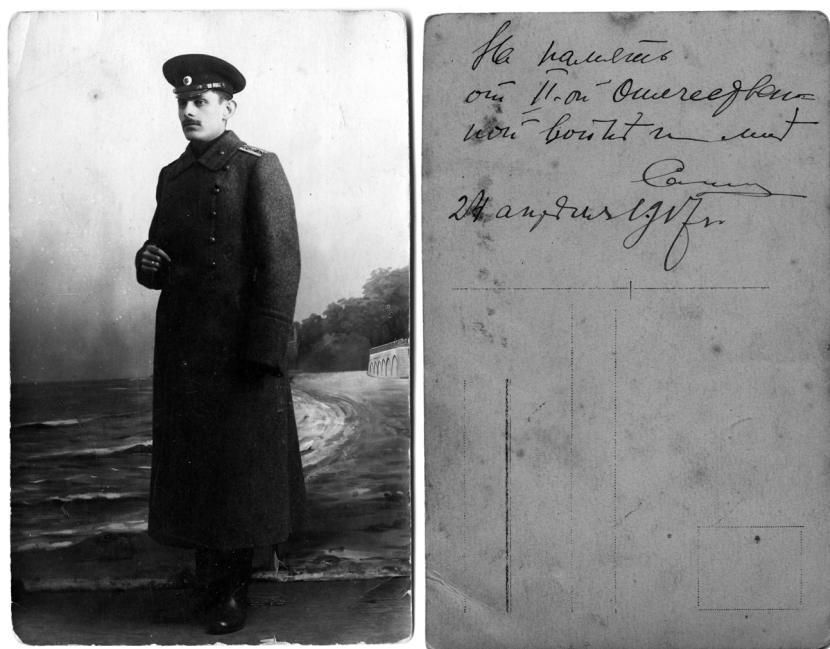 На память
от II-ой Отечествен=
ной войны
24 апреля 1917 г.